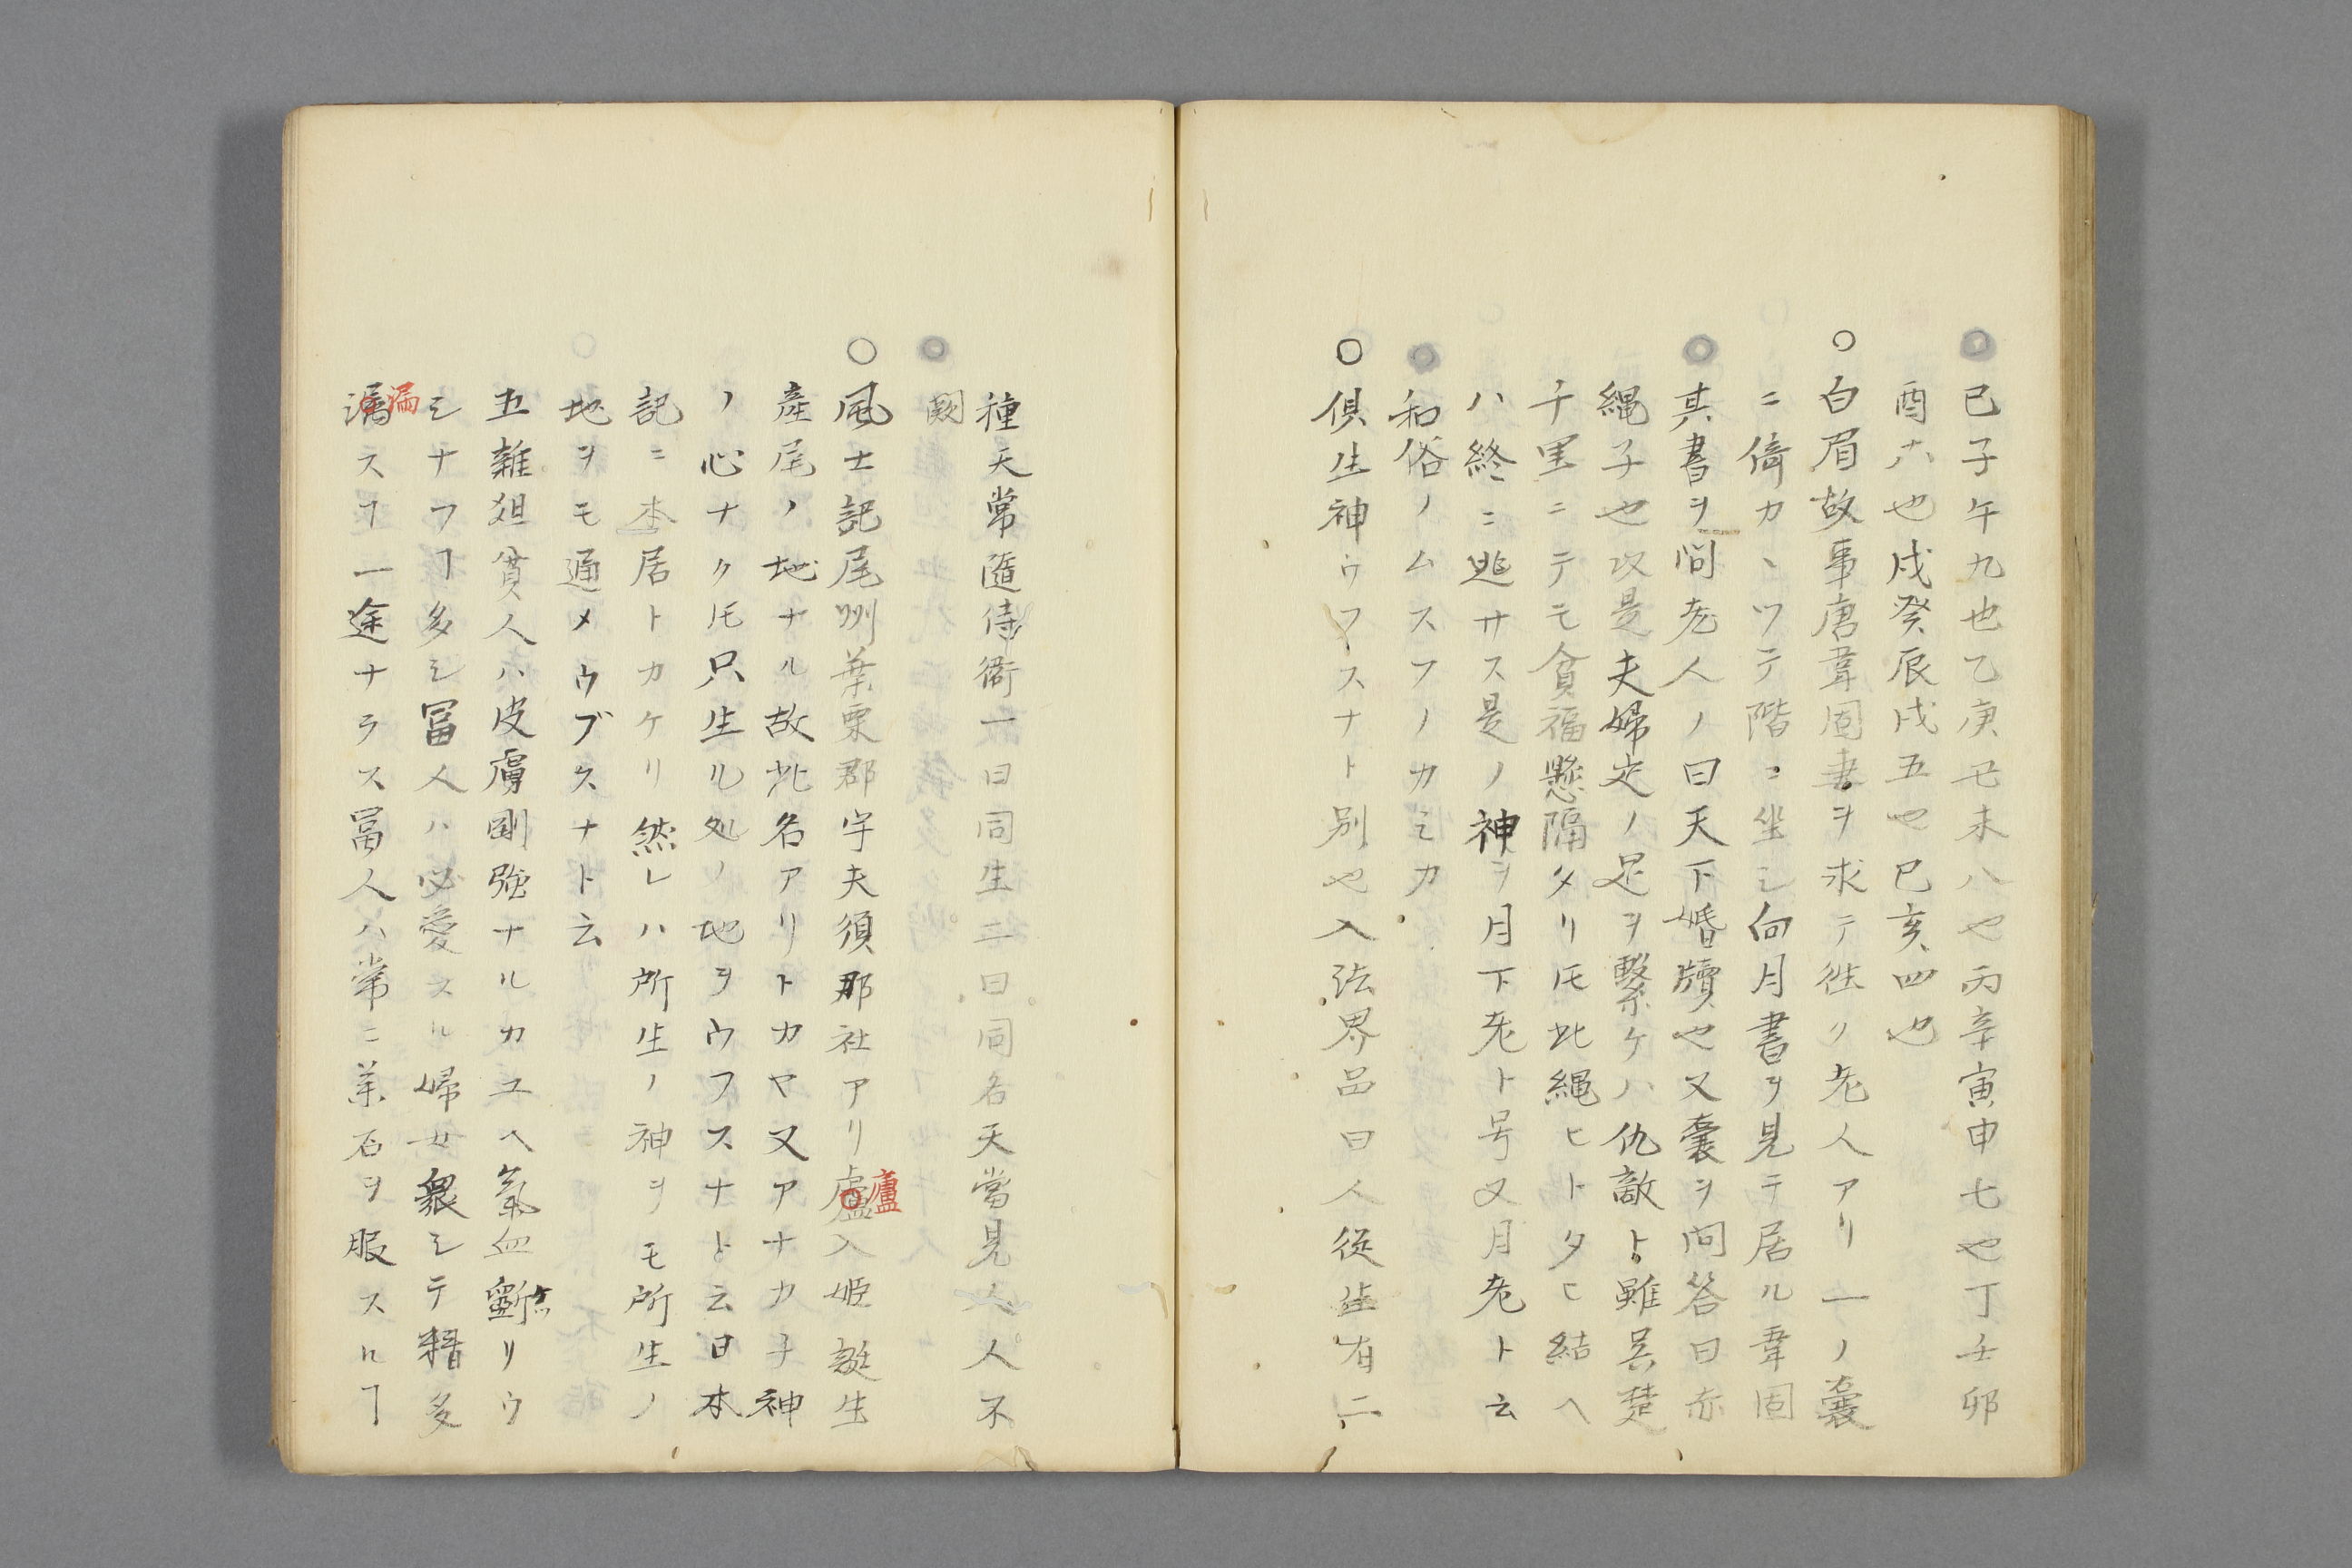 ◎己子午九也乙庚丑未八也丙辛寅申七也丁壬卯
酉六也戊癸辰戌五也巳亥四也
○白眉故事唐韋固妻ヲ求テ徃ク老人アリ一ノ囊
ニ倚カヽツテ階ニ坐シ向月書ヲ見テ居ル韋固
◎其書ヲ問老人ノ曰天下婚牘也又囊ヲ問答曰赤
縄子也以是夫婦定ノ足ヲ繫ケハ仇敵ト雖呉楚
千里ニテモ貧福懸隔タリ𪜈此縄ヒトタヒ結ヘ
ハ終ニ逃サス是ノ神ヲ月下老ト号又月老ト云
◎和俗ノムスフノカミカ
○倶生神ウフスナト別也入法界品曰人従生有二
種天常隨侍衛一曰同生二曰同名天當見人人不
◎闕
○風土記尾州葉栗郡宇夫須那社アリ盧入姫誕生
廬
産尾ノ地ナル故此名アリトカヤ又アナカチ神
ノ心ナク𪜈只生ル処ノ地ヲウフスナト云日本
記ニ本居トカケリ然レハ所生ノ神ヲモ所生ノ
地ヲモ通メウブスナト云
五雜爼貧人ハ皮膚剛強ナルカユヘ氣血斷リウ
シナフヿ多シ冨人ハ必愛スル婦女衆シテ精多
漏
漏スヿ一途ナラス冨人ハ常ニ薬石ヲ服スルヿ